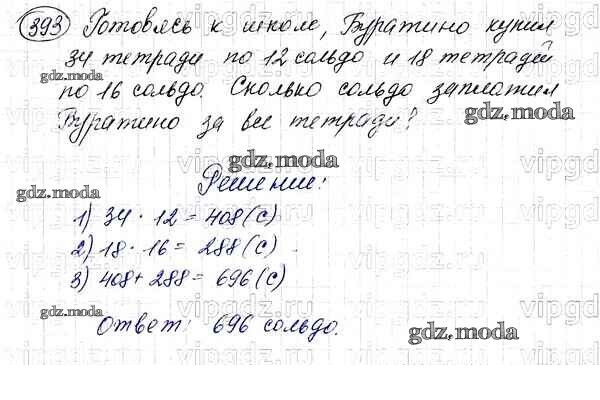 393 Готовясь к школе, Буратино купил
34 тетради по 12 сольдо и 18 тетрадей
по 16 сольдо. Сколько сольдо заплатил
Буратино за все тетради?
Решение:
1) 34 · 12 = 408 (с)
2) 18 · 16 = 288 (с)
3) 408 + 288 = 696 (с)
Ответ: 696 сольдо.
gdz.moda
gdz.moda
gdz.moda
gdz.moda
gdz.moda
gdz.moda